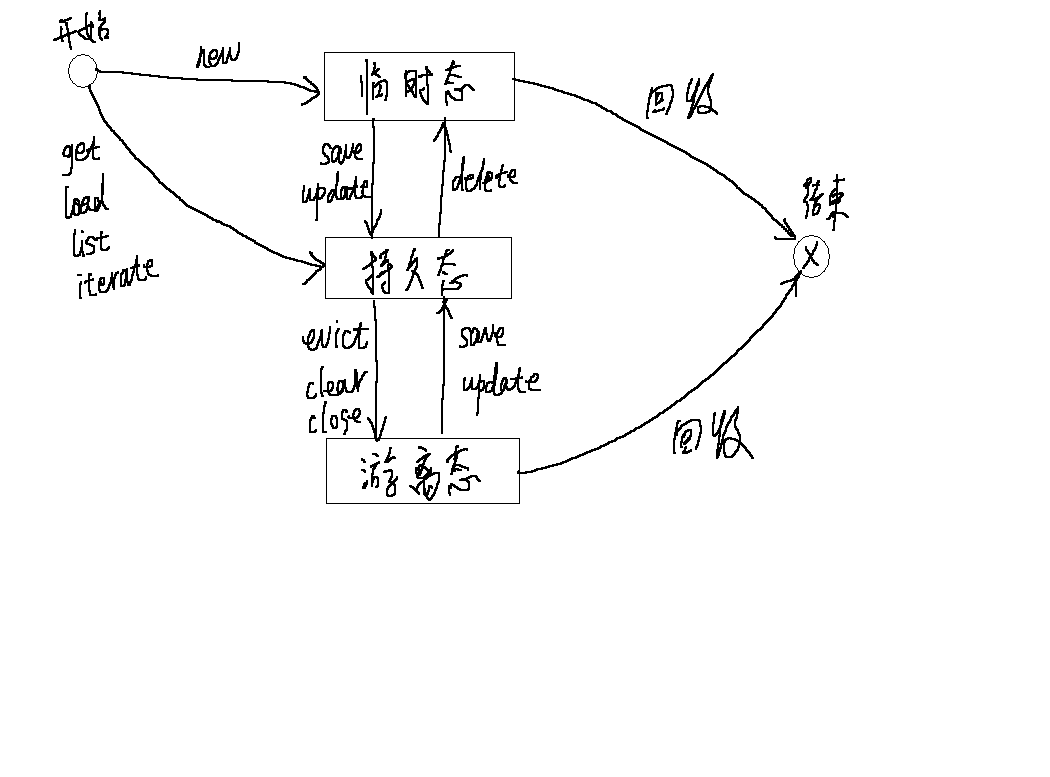 开始
new
临时态
回收
get
load
list
iterate
save
update
delete
结束
X
持久态
evict
clear
close
save
update
游离态
回收